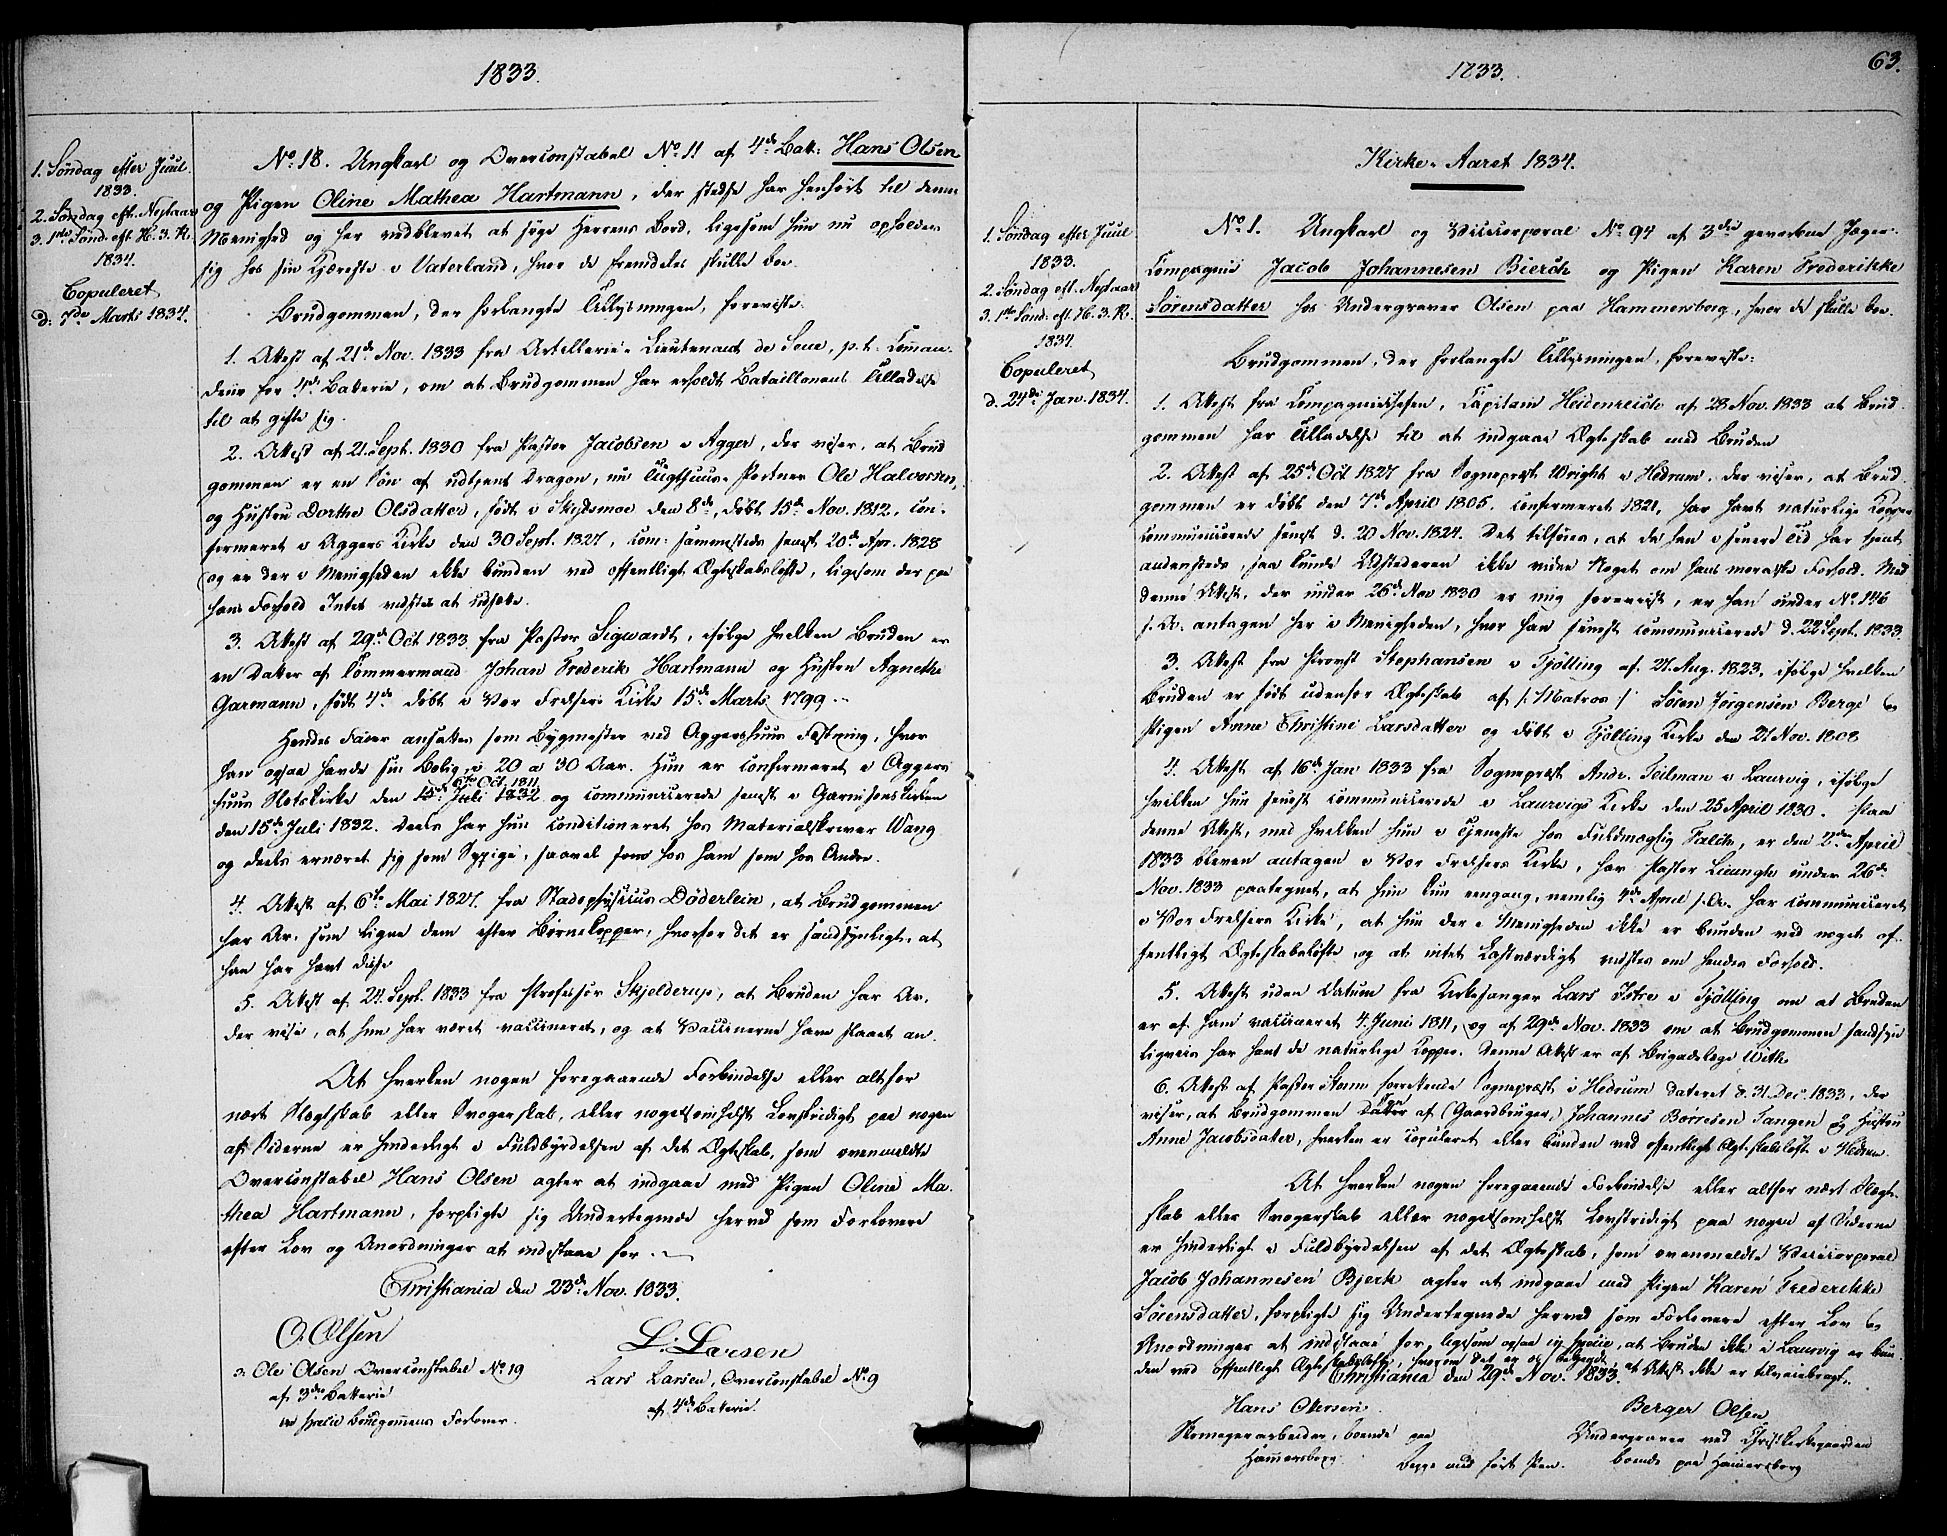 1833.
1. Søndag efter Juul
1833.
2. Søndag eft. Nytaar
3. 1ste Sønd. eft. H. 3. K.
1834.
Copuleret
d: 7de Marts 1834.
No 18. Ungkarl og Overconstabel No 11 af 4de Batt: Hans Olsen
og Pigen Oline Mathea Hartmann, der stedse har henhørt til denne
Menighed og her vedblevet at søge Herrens Bord, ligesom hun nu opholder
sig hos sin Kjæreste i Vaterland, hvor de fremdeles skulle boe.
Brudgommen, der forlangte Tillysningen, foreviste:
1. Attest af 21de Nov. 1833 fra Artillerie-Lieutenant de Seue, p. t. Comman-
deur for 4de Batterie, om at Brudgommen har erholdt Bataillonens Tilladelse
til at gifte sig.
2. Attest af 21. Sept. 1830 fra Pastor Jacobsen i Agger, der viser, at Brud
gommen er en Søn af udtjent Dragon, nu Tugthuus-Portner Ole Halvorsen,
og Hustru Dorthe Olsdatter, født i Skydsmoe den 8de, døbt 15de Nov. 1812, con-
firmeret i Aggers Kirke den 30 Sept. 1827, com: sammesteds senest 20de Apr. 1828
og er der i Menigheden ikke bunden ved offentligt Ægteskabsløfte, ligesom der paa
hans Forhold Intet vidstes at udsætte.
3. Attest af 29de Oct 1833 fra Pastor Sigwardt, ifølge hvilken Bruden er
en Datter af Tømmermand Johan Frederik Hartmann og Hustru Agnethe
Garmann, født 4de døbt i Vor Frelsers Kirke 15de Marts 1799.
Hendes Fader ansattes som Bygmester ved Aggershuus Fæstning, hvor
han ogsaa havde sin Bolig i 20 a 30 Aar. Hun er confirmeret i Aggers
6te Oct. 1811
huus Slotskirke den 15de Juli 1832 og communicerede senest i Garnisonskirken
den 15de Juli 1832. Deels har hun conditioneret hos Materialskriver Wang
og deels ernæret sig som Sypige, saavel som hos ham som hos Andre.
4. Attest af 6te Mai 1827 fra Stadsphysicus Döderlein, at Brudgommen
har Ar, som ligne dem efter Børnekopper, hvorfor det er sandsynligt, at
han har havt disse
5. Attest af 24. Sept. 1833 fra Professor Skjelderup, at Bruden har Ar,
der vise, at hun har været vaccineret, og at Vaccinerne have slaaet an.
At hverken nogen foregaaende Forbindelse eller altfor
nært Slægtskab eller Svogerskab, eller nogetsomhelst Lovstridigt paa nogen
af Siderne er hinderligt i Fuldbyrdelsen af det Ægteskab, som ovenmeldte
Overconstabel Hans Olsen agter at indgaae med Pigen Oline Ma-
thea Hartmann, forpligte sig Undertegnede herved som Forlovere
efter Lov og Anordninger at indstaae for.
Christiania den 23de Nov. 1833.
O. Olsen
L. Larsen
Ole Olsen Overconstabel No 19
Lars Larsen, Overconstabel No 9
af 3die Batterie
af 4de Batterie
in specie Brudgommens Forlover.
1833.
63.
1. Søndag efter Juul
1833.
2. Søndag eft. Nytaar
3. 1ste Sønd. eft. H. 3. K.
1834.
Copuleret
d. 24de Jan. 1834.
Kirke-Aaret 1834.
No 1. Ungkarl og Vicecorporal No 94 af 3die gevorbne Jæger-
Compagnie Jacob Johannesen Bierck og Pigen Karen Frederikke
Sørensdatter hos Undergraver Olsen paa Hammersborg, hvor de skulle boe.
Brudgommen, der forlangte Tillysningen, foreviste:
1. Attest fra Compagniechefen, Capitain Heidenreich af 28 Nov. 1833 at Brud-
gommen har Tilladelse til at indgaae Ægteskab med Bruden
2. Attest af 25de Oct 1827 fra Sognepræst Wright i Hedrum, der viser, at Brud
gommen er døbt den 7de April 1805, confirmeret 1821, har havt naturlige Kopper
communicerede senest d. 20 Nov. 1824. Det tilføies, at da han i senere Tid har tjent
andensteds, saa kunde Udstederen ikke vidne Noget om hans moralske Forhold. Med
denne Attest, der under 26de Nov 1830 er mig foreviist, er han under No 146
s. A. antagen her i Menigheden, hvor han senest communicerede d. 22 Sept. 1833.
3. Attest fra Provst Stephansen i Tjölling af 21. Aug. 1823, ifølge hvilken
Bruden er født udenfor Ægteskab af /: Matros :/ Søren Jørgensen Berge og
Pigen Anne Christine Larsdatter og døbt i Tjölling Kirke den 21 Nov. 1808
4. Attest af 16de Jan 1833 fra Sognepræst Andr. Teilman i Laurvig, ifølge
hvilken hun senest communicerede i Laurvigs Kirke den 25 April 1830. Paa
denne Attest, med hvilken hun i Tjeneste hos Fuldmægtig Falck, er den 2den April
1833 bleven antagen i Vor Frelsers Kirke, har Pastor Lieungh under 26de
Nov. 1833 paategnet, at hun kun eengang, nemlig 4de April s. A. har communiceret
i Vor Frelsers Kirke, at hun der i Menigheden ikke er bunden ved noget of-
fentligt Ægteskabsløfte og at intet Lastværdigt vidstes om hendes Forhold.
5. Attest uden Datum fra Kirkesanger Lars Istre i Tjölling om at Bruden
er af ham vaccineret 4. Juni 1811, og af 29de Nov. 1833 om at Brudgommen sandsyn
ligviis har havt de naturlige Kopper. Denne Attest er af Brigadelæge With
6. Attest af Pastor Stenn forrettende Sognepræst i Hedrum dateret d. 31. Dec. 1833, der
viser, at Brudgommen Søn af (Gaardbruger) Johannes Børresen Tangen og Hustru
Anne Jacobsdatter, hverken er copuleret eller bunden ved offentligt Ægteskabsløfte i Hedrum.
At hverken nogen foregaaende Forbindelse eller altfor nært Slægt-
skab eller Svogerskab eller nogetsomhelst Lovstridigt paa nogen af Siderne
er hinderligt i Fuldbyrdelsen af det Ægteskab, som ovenmeldte Vicecorporal
Jacob Johannesen Bjerk agter at indgaae med Pigen Karen Frederikke
Sørensdatter, forpligte sig Undertegnede herved som Forlovere efter Lov og
Anordninger at indstaae for, ligesom ogsaa in specie, at Bruden ikke i Laurvig er bun
den ved offentligt Ægteskabsløfte, hvorom det er os bekjendt, at Attest ikke er tilveiebragt.
Christiania den 29de Nov. 1833.
Hans Olsen
Berger Olsen
Skomagerarbeider, boende paa
Undergraver ved Christ Kirkegaarden
Hammersborg
boende paa Hammersborg
Begge med ført Pen.